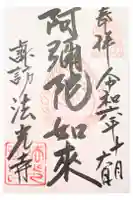 奉拝 令和六年十
阿彌陀如來
諏訪 法光寺